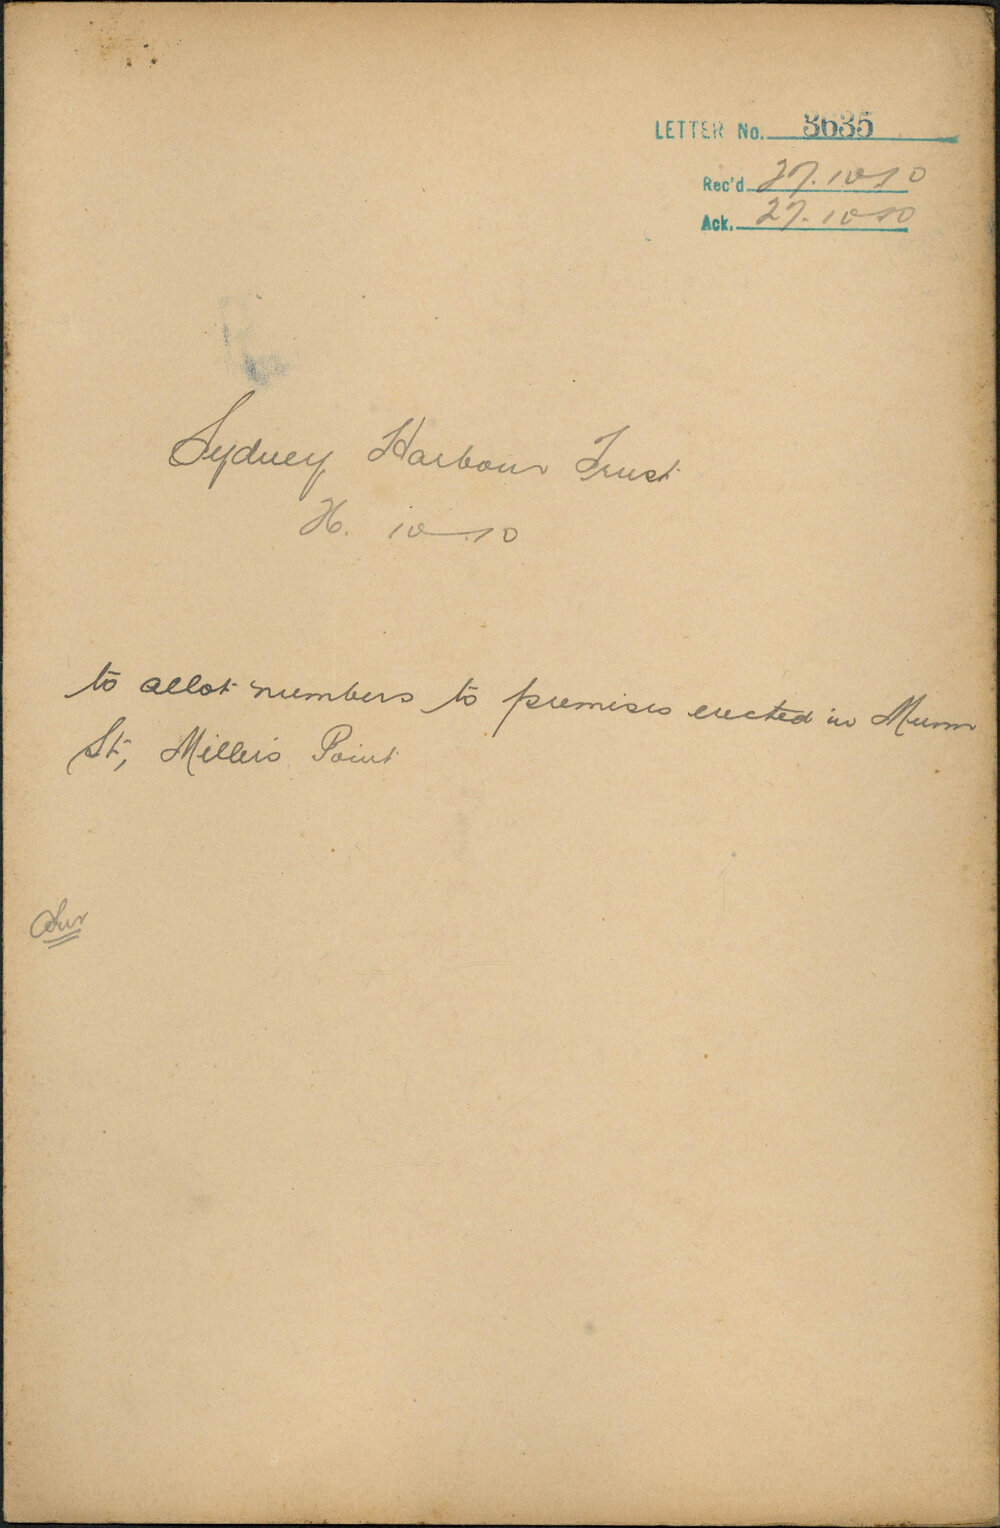 LETTER No. 3635
Rec'd 27.10.10
Ack. 27.10.10
Sydney Harbour Trust
26. 10.10
to allot numbers to premises erected in Munn
St, Millers Point
Sur